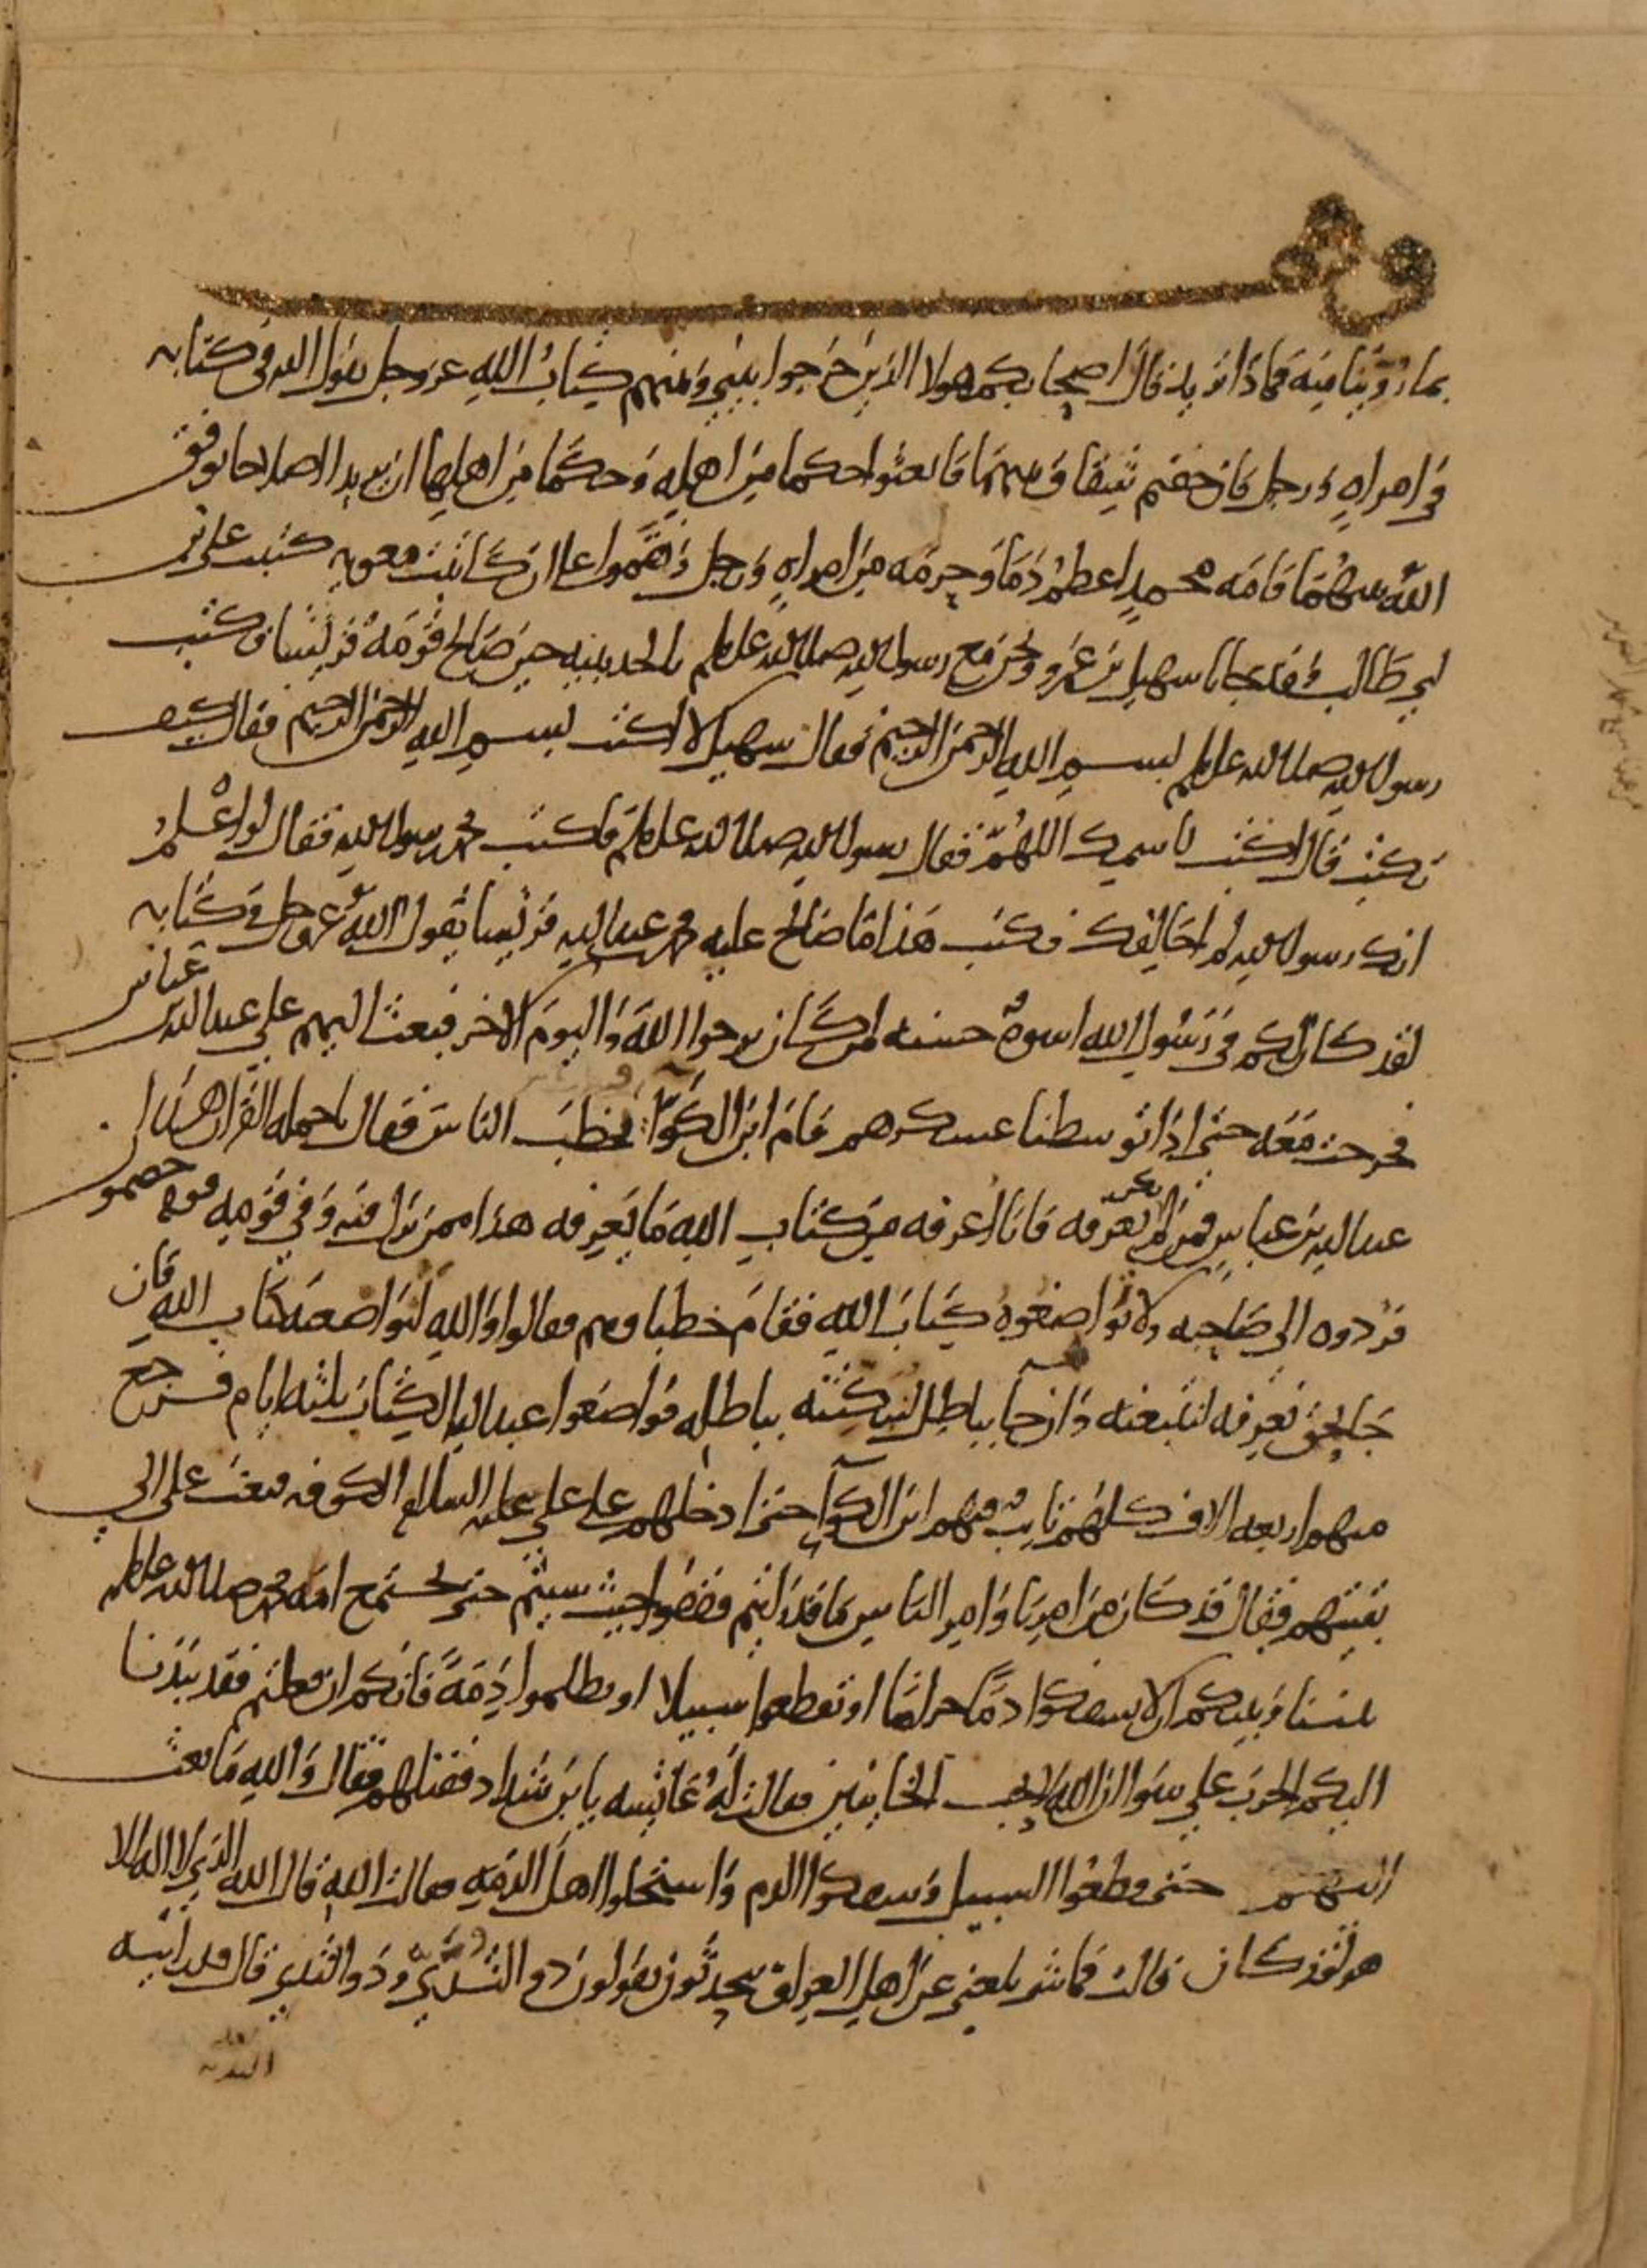 بما روينا منه فماذا تريد قال اصحابكم هولا الذين خرجوا بيني وبينهم كتاب الله عز وجل يقول الله في كتابه
في امراه ورجل فان خفتم شقاق بينهما فابعثوا حكما من اهله وحكما من اهلها ان يريدا اصلاحا يوفق
الله بينهما فامه محمد اعظم دما وحرمه من امراه ورجل ونقموا علي ان كاتبت معويه كتبت علي بن
ابي طالب وقد جانا سهيل بن عمرو ونحن مع رسول الله صلى الله عليه وسلم بالحديبيه حين صالح قومه قريشا فكتب
رسول الله صلى الله عليه وسلم بسم الله الرحمن الرحيم فقال سهيل لا اكتب بسم الله الرحمن الرحيم فقال كيف
نكتب قال اكتب باسمك اللهم فقال رسول الله صلى الله عليه وسلم فاكتب محمد رسول الله فقال لو اعلم
انك رسول الله لم اخالفك فكتب هذا ما صالح عليه محمد بن عبد الله قريشا يقول الله عز وجل في كتابه
لقد كان لكم في رسول الله اسوة حسنه لمن كان يرجوا الله واليوم الاخر فبعث اليهم علي عبد الله بن عباس
فخرجت معه حتى اذا توسطنا عسكرهم قام ابن الكوا يخطب الناس فقال يا حمله القران هذا
عبد الله بن عباس فمن لم يكن يعرفه فانا اعرفه من كتاب الله ما يعرفه هذا ممن نزل فيه وفي قومه قوم خصمون
فردوه الى صاحبه ولا تواضعوه كتاب الله فقام خطباوهم فقالوا والله لنواضعنه كتاب الله فان
جا بحق نعرفه لنتبعنه وان جا بباطل لنبكتنه بباطله فواضعوا عبد الله الكتاب ثلثه ايام فرجع
منهم اربعه الاف كلهم تايب فيهم ابن الكوا حتى ادخلهم على علي عليه السلام الكوفه فبعث علي الى
بقيتهم فقال قد كان من امرنا وامر الناس ما قد رايتم فقفوا حيث شيتم حتى تجتمع امه محمد صلى الله عليه وسلم
بيننا وبينكم الا تسفكوا دما حراما او تقطعوا سبيلا او تظلموا ذمة فانكم ان فعلتم فقد نبذنا
اليكم الحرب على سوا ان الله لا يحب الخاينين فقالت له عايشه يا بن شداد فقتلهم فقال والله ما بعث
اليهم حتى قطعوا السبيل وسفكوا الدم واستحلوا اهل الذمه فقالت الله قال الله الذي لا اله الا
هو لقد كان قالت فما شي بلغني عن اهل العراق يتحدثون يقولون ذو الثدي وذو الثدي قال قد رايته